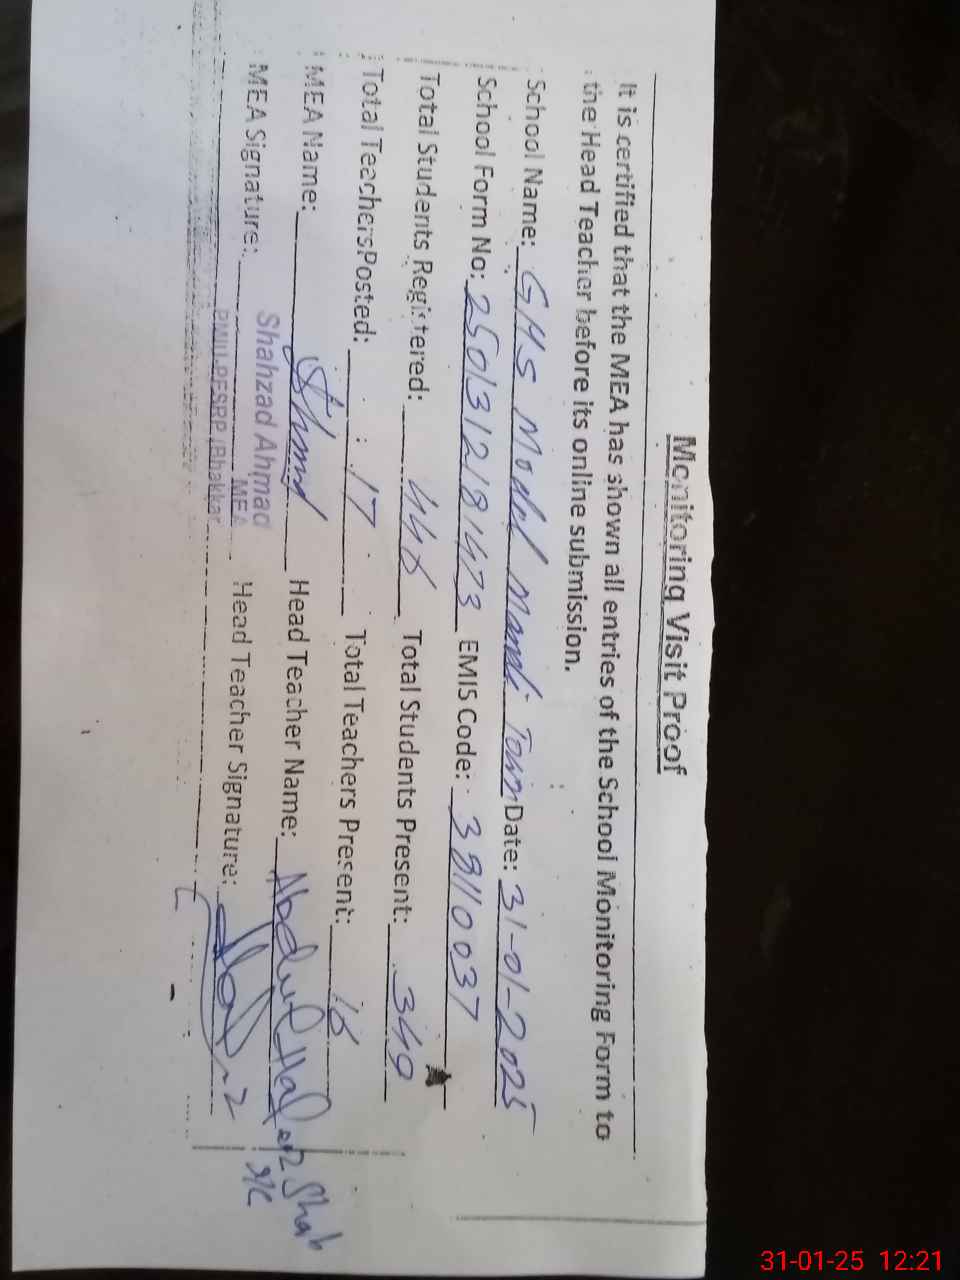 Monitoring Visit Proof
It is certified that the MEA has shown all entries of the School Monitoring Form to
the Head Teacher before its online submission.
School Name: GHS Model Mandi Town Date: 31-01-2025
School Form No: 2501312181473 EMIS Code: 38110037
Total Students Registered: 448 Total Students Present: 349
Total TeachersPosted: 17 Total Teachers Present: 16
MEA Name: Head Teacher Name: Abdul Hafeez Shah
I/C
MEA Signature: Head Teacher Signature:
Shahzad Ahmad
MEA
PMIU-PESRP (Bhakkar
31-01-25 12:21